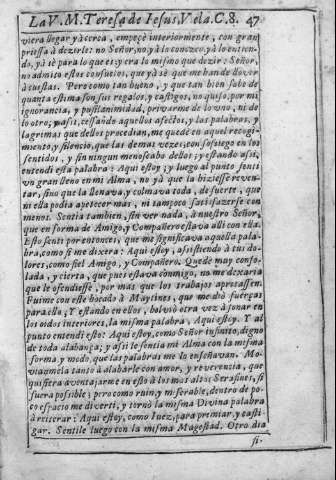 La V. M. Teresa de Iesus, Vela. C. 8. 47
viera llegar yà cerca, empeçè interiormente, con gran
priessa à dezirle: no Señor, no, yà lo conozco, yà lo entien-
do, yà sè para lo que es: y era lo mismo que dezir: Señor,
no admito estos consuelos, que yà sè que me han de llover
à cuestas. Pero como tan bueno, y que tan bien sabe de
quanta estima son sus regalos, y castigos, no quiso, por mi
ignorancia, y pusilanimidad, privarme de lo uno, ni de
lo otro; y assi, cessando aquellos afectos, y las palabras, y
lagrimas que dellos procedian, me quedè en aquel recogi-
miento, y silencio, que las demas vezes; con sosiego en los
sentidos, y sin ningun meneo sabe dellos: y estando assi,
entendi esta palabra: Aqui estoy; y luego al punto sentì
un gran lleno en mi Alma, no yà que la hiziesse reven-
tar, sino que la llenava, y colmava toda, de suerte, que
ni ella podia apetecer mas, ni tampoco satisfazerse con
menos. Sentia tambien, sin ver nada, à nuestro Señor,
que en forma de Amigo, y Compañero estava alli con ella.
Esto sentì por entonces, que me significava aquella pala-
bra, como si me dixera: Aqui estoy, assistiendo à tus do-
lores, como fiel Amigo, y Compañero. Quedè muy conso-
lada, y cierta, que pues estava conmigo, no me dexaria
que le ofendiesse, por mas que los trabajos apretassen.
Fuime con este bocado à Maytines, que me diò fuerças
para ello; Y estando en ellos, bolviò otra vez à sonar en
los oidos interiores, la misma palabra, Aqui estoy. Y al
punto entendì esto: Aqui estoy, como Señor infinito, digno
de toda alabança; y assi le sentia mi Alma con la misma
forma y modo, que las palabras me lo enseñavan. Mo-
viame la tanto à alabarle con amor, y reverencia, que
quisiera aventajarme en esto à los mas altos Serafines, si
fuera possible; pero como ruin, y miserable, dentro de po-
co espacio me divertì, y tornò la misma Divina palabra
à reiterar: Aqui estoy, como Iuez, para premiar, y casti-
gar. Sentile luego con la misma Magestad. Otro dia
si-